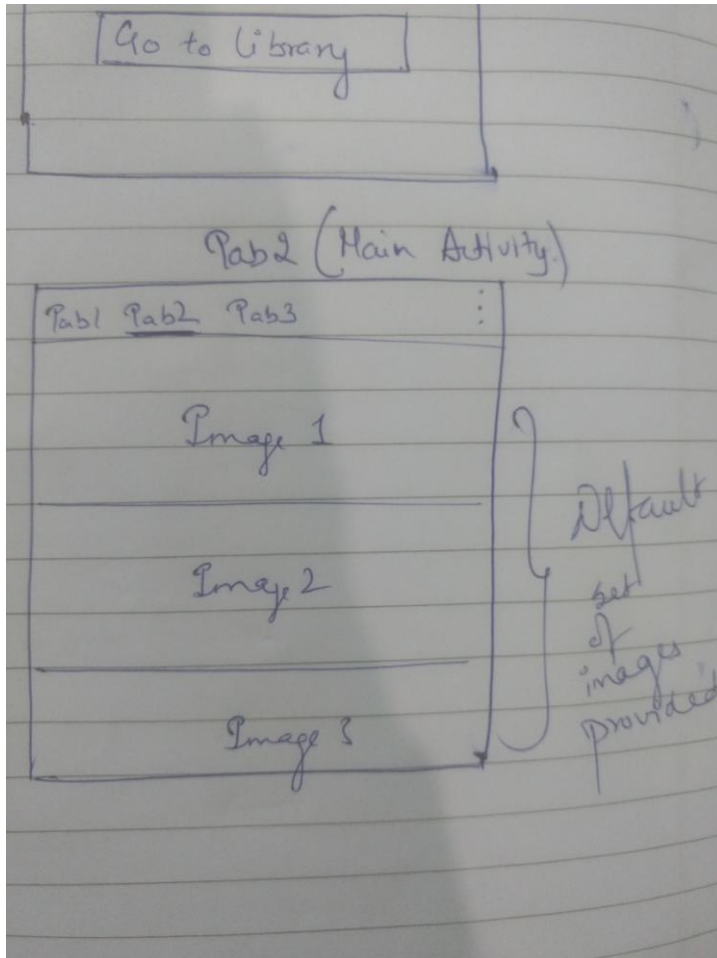 Go to Library
Tab2 (Main Activity)
Tab1 Tab2 Tab3
Image 1
Image 2
Image 3
Default
set
of
images
provided